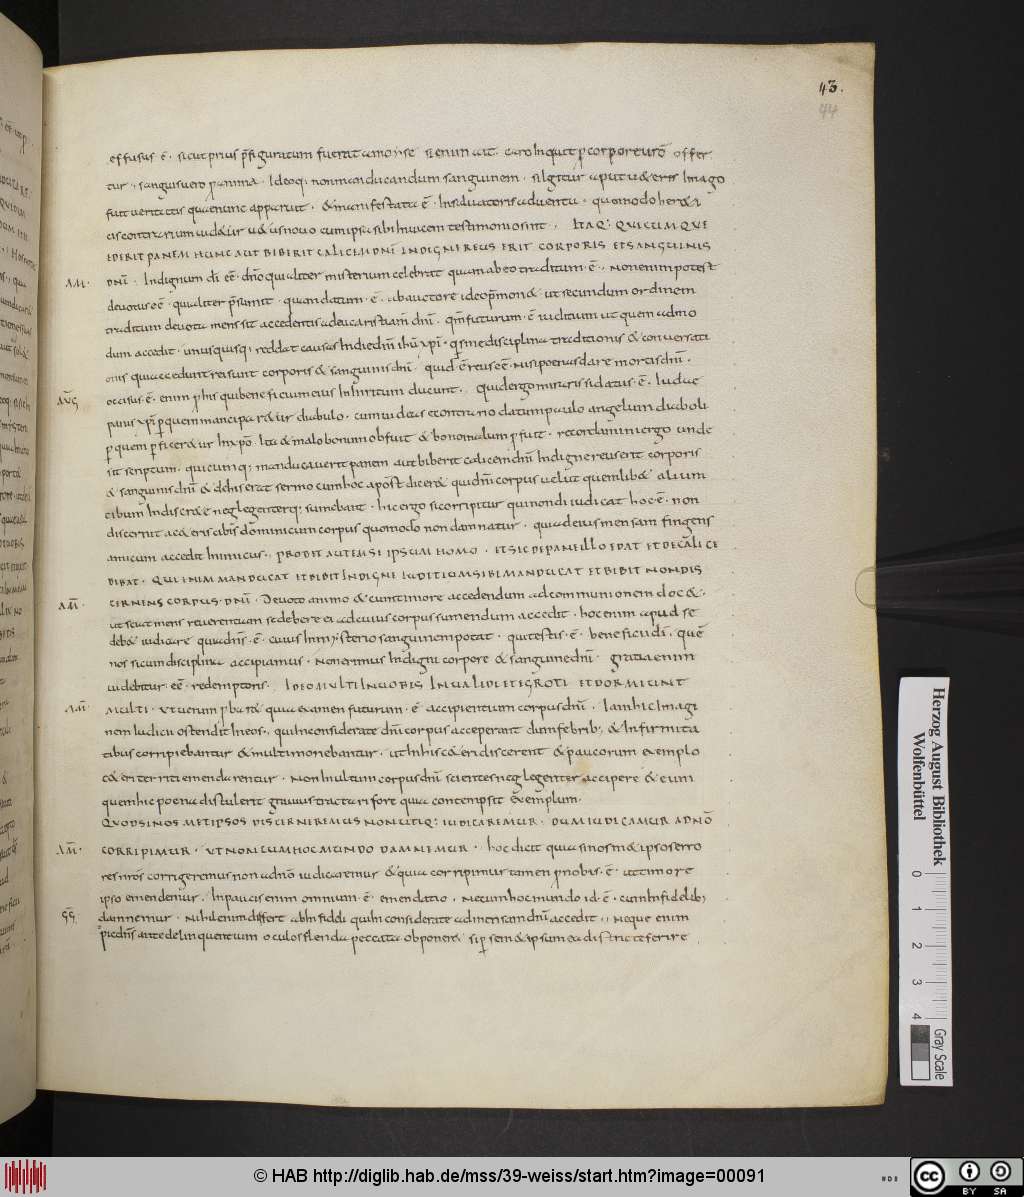 43.
44
effusus ē· sicut prius p̄figuratum fuerat a moyse si enim ait· caro Inquit p corpore ur̄o offer
tur· sanguis uero p anima· Ideoq; non manducandum sanguinem· si Igitur aput u&eres Imago
fuit ueritatis quae nunc apparuit· & manifestata ē· In saluatoris aduentu· quomodo
cis contrarium uid&ur u& us nouo cum ipsa sibi Inuicem testimonio sint·, ITAQ; QUICUMQUE
EDERIT PANEM HUNC AUT BIBERIT CALICEM DN̄I INDIGNE REUS ERIT CORPORIS ET SANGUINIS
AM· DN̄I· Indignum dī eē· dn̄o qui aliter misterium celebrat quam ab eo traditum· ē·, Non enim potest
deuotus eē· qui aliter p̄sumit· quam datum· ē· ab auctore ideo p̄mon& ut secundum ordinem
traditum deuota mens sit accedentis ad eucaristiam dn̄i· qm̄ futurum· ē iuditium ut quem admo
dum accedit· unusquisq; reddat causas In die dn̄i ihū xp̄i· q sine disciplina traditionis & conuersati
onis qui accedunt rei sunt corporis & sanguinis dn̄i· quid ē reus eē· nisi poenas dare mortis dn̄i·
AUḠ occisus· ē· enim p his qui beneficium eius In Irritum ducunt·, quid ergo miraris si datus· ē· Iudae
panis xp̄i p quem manciparetur diabulo· cum uideas e contrario datum paulo angelum diaboli
p quem pficer&ur In xp̄o Ita & malo bonum obfuit & bono malum pfuit· recordamini ergo unde
sit scriptum· quicumq; manducauerit panem aut biberit calicem dn̄i Indigne reus erit corporis
& sanguinis dn̄i & de his erat sermo cum hoc apost dicer& qui dn̄i corpus uelut quemlib& alium
cibum Indiscr&e neglegenterq; sumebant· hic ergo si corripitur qui non diiudicat hoc· ē· non
discernit a c&eris cibis dominicum corpus quomodo non damnatur· qui ad eius mensam fingens
amicum accedit Inimicus·, PROBIT AUTEM SE IPSUM HOMO· ET SIC DE PANE ILLO EDAT ET DE CALICE
BIBAT· QUI ENIM MANDUCAT ET BIBIT INDIGNE IUDITIUM SIBI MANDUCAT ET BIBIT NON DIS
AM̄· CERNENS CORPUS· DN̄I· Deuoto animo & cum timore accedendum ad communionem doc&·
ut sciat mens reuerentiam se debere ei ad cuius corpus sumendum accedit· hoc enim apud se
deb& iudicare quia dn̄s· ē· cuius In mysterio sanguinem potat· qui testis· ē· beneficii dī· quē
nos si cum disciplina accipiamus· Non erimus Indigni corpore & sanguine dn̄i· gratia enim
uidebitur eē· redemptoris·, IDEO MULTI IN UOBIS INUALIDI ET EGROTI ET DORMIUNT
AM̄· MULTI· Ut uerum pbar& quia examen futurum· ē accipientium corpus dn̄i· Iam hic Imagi
nem Iudicii ostendit In eos·, qui Inconsiderate dn̄i corpus acceperant dum febrib; & Infirmita
tibus corripiebantur & multi moriebantur· ut In his c&eri discerent & paucorum exemplo
c&eri territi emendarentur· Non Inultum corpus dn̄i scientes neglegenter accipere & eum
quem hic poena distulerit grauius tractari fore quia contempsit exemplum·
QUOD SI NOS METIPSOS DISCERNEREMUS NON UTIQ; IUDICAREMUR· DUM IUDICAMUR A DN̄O
AM̄· CORRIPIMUR· UT NON CUM HOC MUNDO DAMNEMUR· hoc dicit quia si nosm&ipsos erro
res nr̄os corrigeremus non a dn̄o iudicaremur & quia corripimur tamen p nobis· ē· ut timore
ipso emendemur· In paucis enim omnium· ē· emendatio· Ne cum hoc mundo id· ē· cum Infidelib;
GḠ damnemur· Nihil enim differt ab Infideli qui Inconsiderate ad mensam dn̄i accedit·, Neque enim
pie dn̄s ante delinquentium oculos flenda peccata obponer& si p sem&ipsum ea districte ferire
Herzog August Bibliothek
Wolfenbüttel
0
1
2
3
4
Gray Scale
© HAB http://diglib.hab.de/mss/39-weiss/start.htm?image=00091
cc BY SA